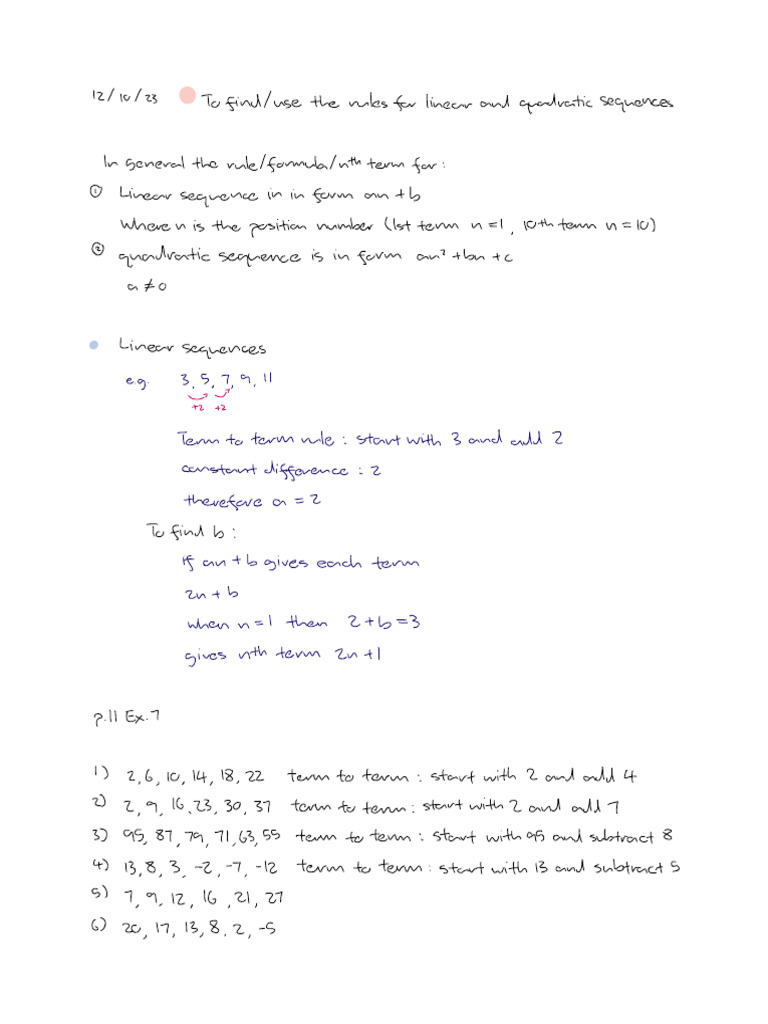 12/10/23 To find/use the rules for linear and quadratic sequences
In general the rule/formula/nth term for:
① Linear sequence in in form an+b
Where n is the position number (1st term n=1, 10th term n=10)
② quadratic sequence is in form an²+bn+c
a≠0
Linear sequences
e.g. 3, 5, 7, 9, 11
+2 +2
Term to term rule : start with 3 and add 2
constant difference : 2
therefore a = 2
To find b :
if an+b gives each term
2n+b
when n=1 then 2+b=3
gives nth term 2n+1
p.11 Ex.7
1) 2, 6, 10, 14, 18, 22 term to term : start with 2 and add 4
2) 2, 9, 16, 23, 30, 37 term to term : start with 2 and add 7
3) 95, 87, 79, 71, 63, 55 term to term : start with 95 and subtract 8
4) 13, 8, 3, -2, -7, -12 term to term : start with 13 and subtract 5
5) 7, 9, 12, 16, 21, 27
6) 20, 17, 13, 8, 2, -5